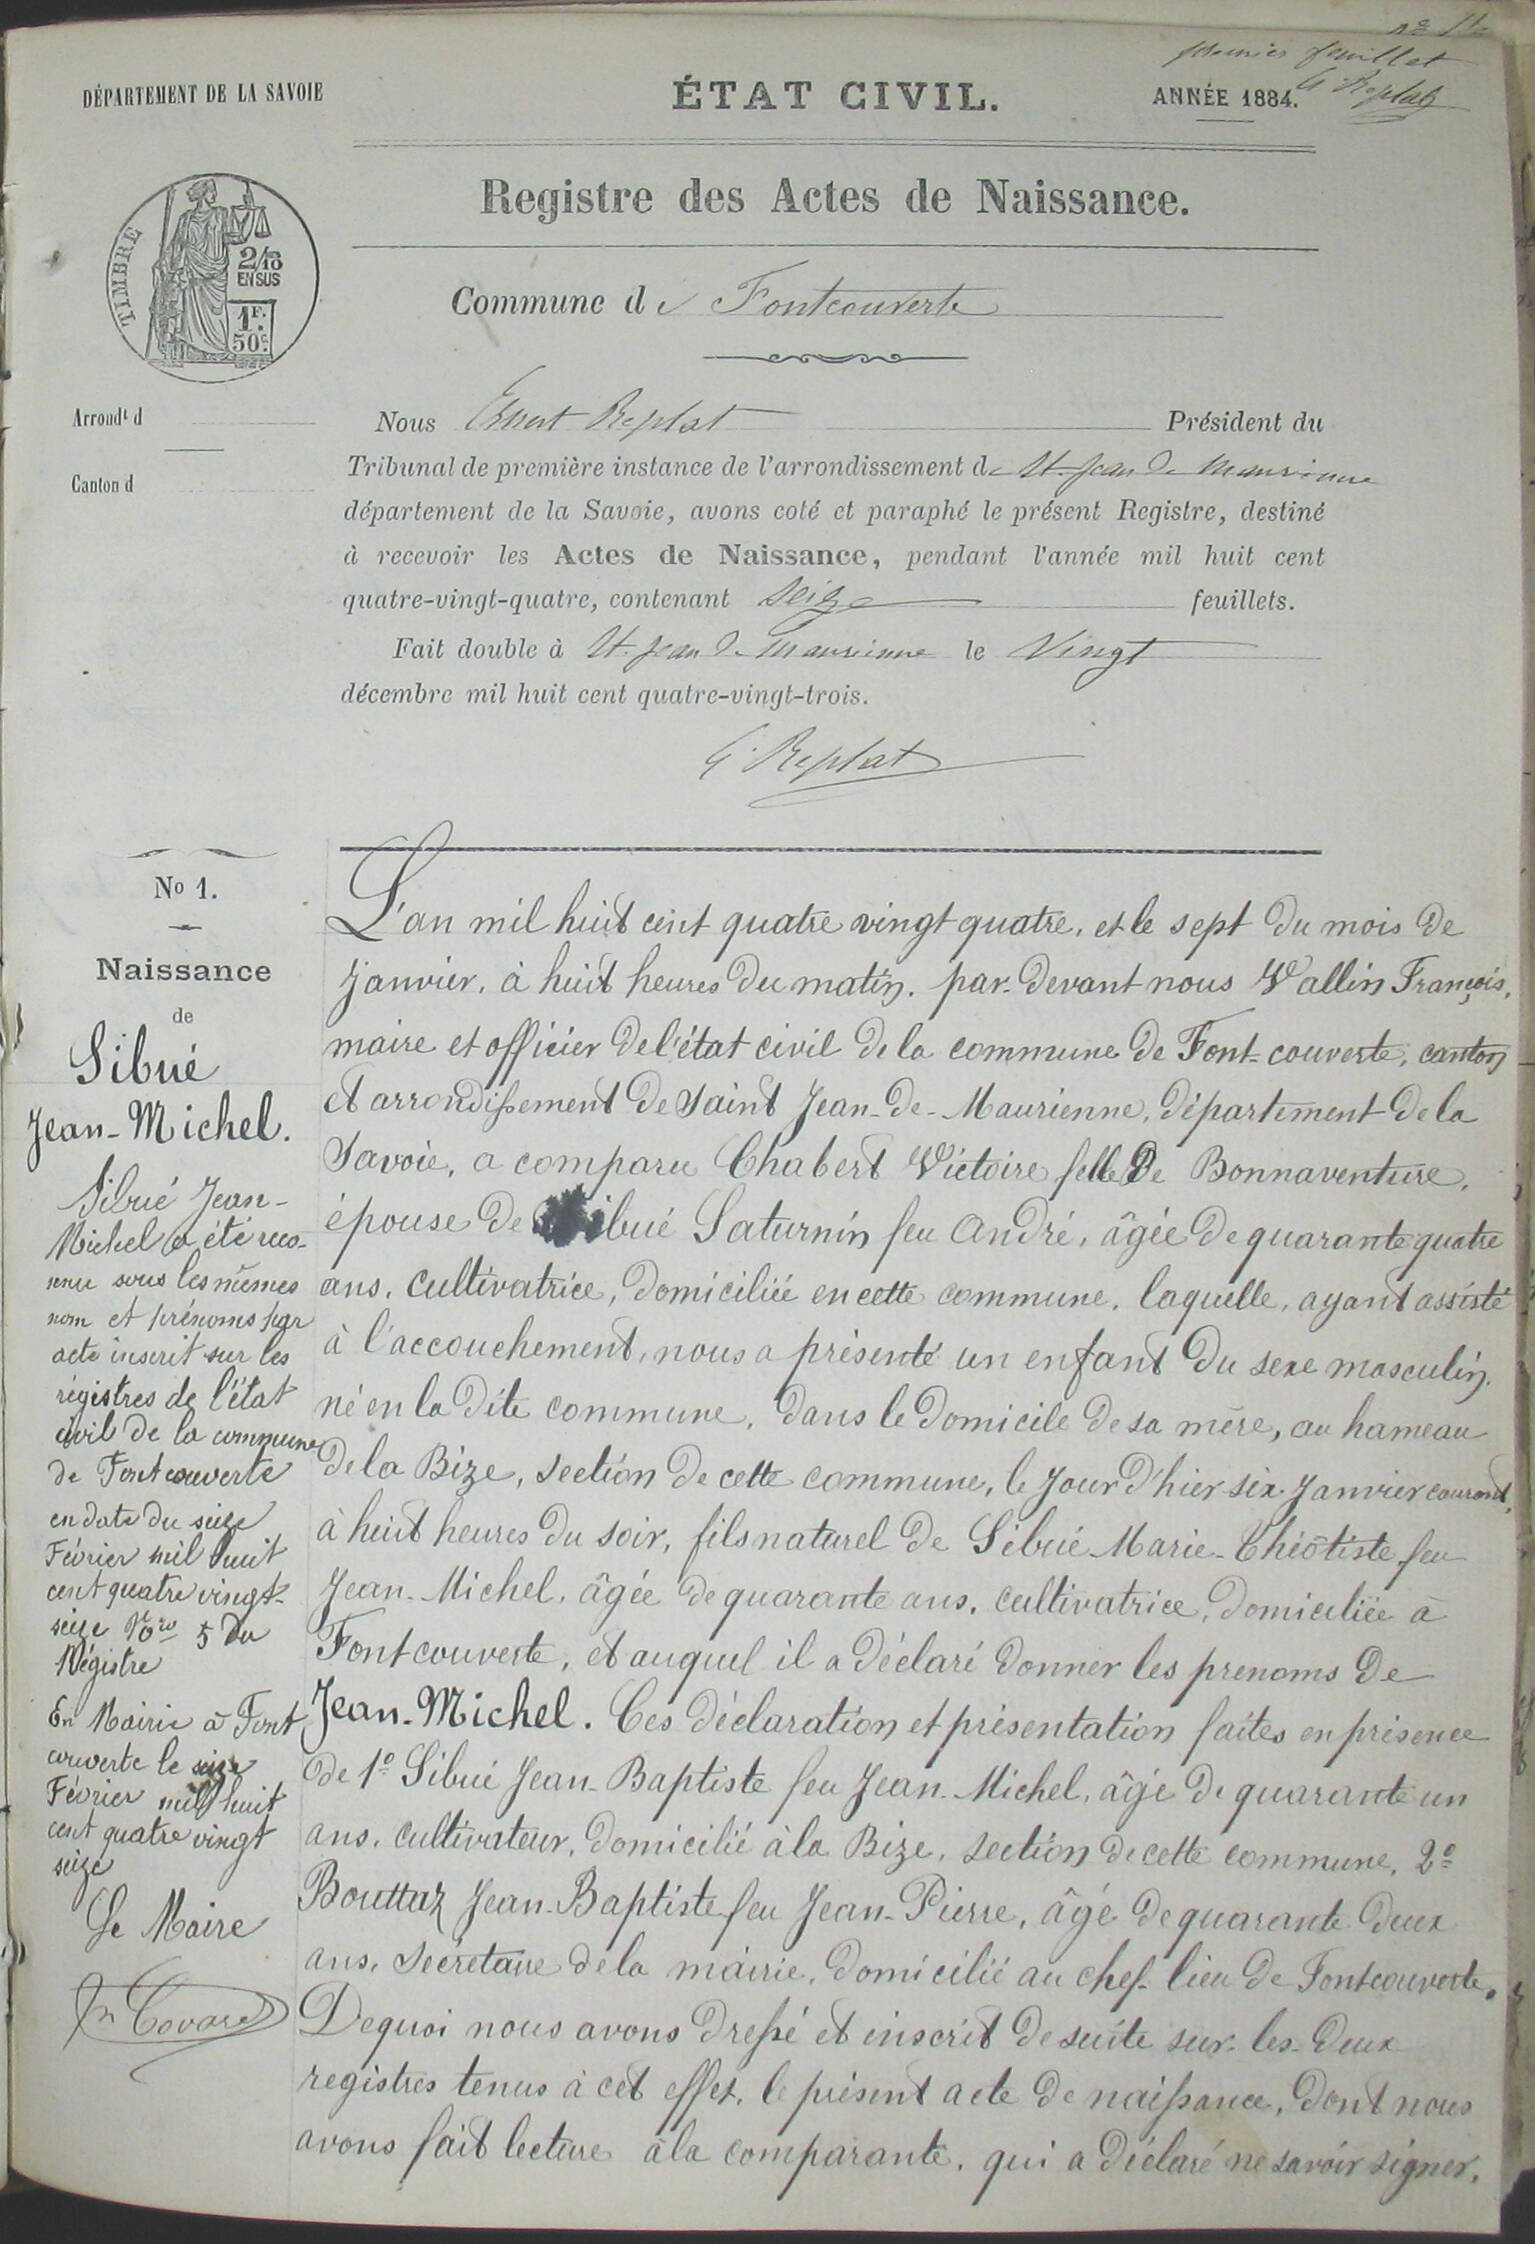 premier feuillet
DÉPARTEMENT DE LA SAVOIE
ÉTAT CIVIL.
ANNÉE 1884.
G. Replat
Registre des Actes de Naissance.
TIMBRE
2/10
EN SUS
1F.
50c.
Commune de Fontcouverte
Arrondt d
Canton d
Nous Replat Président du
Tribunal de première instance de l'arrondissement de St. Jean de Maurienne
département de la Savoie, avons coté et paraphé le présent Registre, destiné
à recevoir les Actes de Naissance, pendant l'année mil huit cent
quatre-vingt-quatre, contenant seize feuillets.
Fait double à St. Jean de Maurienne le Vingt
décembre mil huit cent quatre-vingt-trois.
G. Replat
No 1.
Naissance
de
Sibué
Jean-Michel.
Sibué Jean-
Michel a été reco-
nnu sous les mêmes
nom et prénoms par
acte inscrit sur les
régistres de l'état
civil de la commune
de Fontcouverte
en date du seize
Février mil huit
cent quatre vingt-
seize Nro 5 du
Régistre
En Mairie à Font
couverte le seize
Février mil huit
cent quatre vingt
seize
Le Maire
L'an mil huit cent quatre vingt quatre, et le sept du mois de
janvier, à huit heures du matin, par-devant nous Wallin François,
maire et officier de l'état civil de la commune de Font-couverte, canton
et arrondissement de Saint Jean-de-Maurienne, département de la
Savoie, a comparu Chabert Victoire fille De Bonnaventure,
épouse de Sibué Saturnin feu André, âgée de quarante quatre
ans, cultivatrice, domiciliée en cette commune, laquelle, ayant assisté
à l'accouchement, nous a présenté un enfant du sexe masculin,
né en la dite commune, dans le domicile de sa mère, au hameau
de la Bize, section de cette commune, le jour d'hier six janvier courant,
à huit heures du soir, fils naturel de Sibué Marie-Théotiste feu
Jean-Michel, âgée de quarante ans, cultivatrice, domiciliée à
Fontcouverte, et auquel il a déclaré donner les prenoms de
Jean-Michel. Ces déclaration et présentation faites en présence
de 1o Sibué Jean-Baptiste feu Jean-Michel, âgé de quarante un
ans, cultivateur, domicilié à la Bize, section de cette commune, 2o
Bouttaz Jean-Baptiste feu Jean-Pierre, âgé de quarante deux
ans, secrétaire de la mairie, domicilié au chef-lieu de Fontcouverte.
De quoi nous avons dressé et inscrit de suite sur les deux
registres tenus à cet effet, le présent acte de naissance, dont nous
avons fait lecture à la comparante, qui a déclaré ne savoir signer.